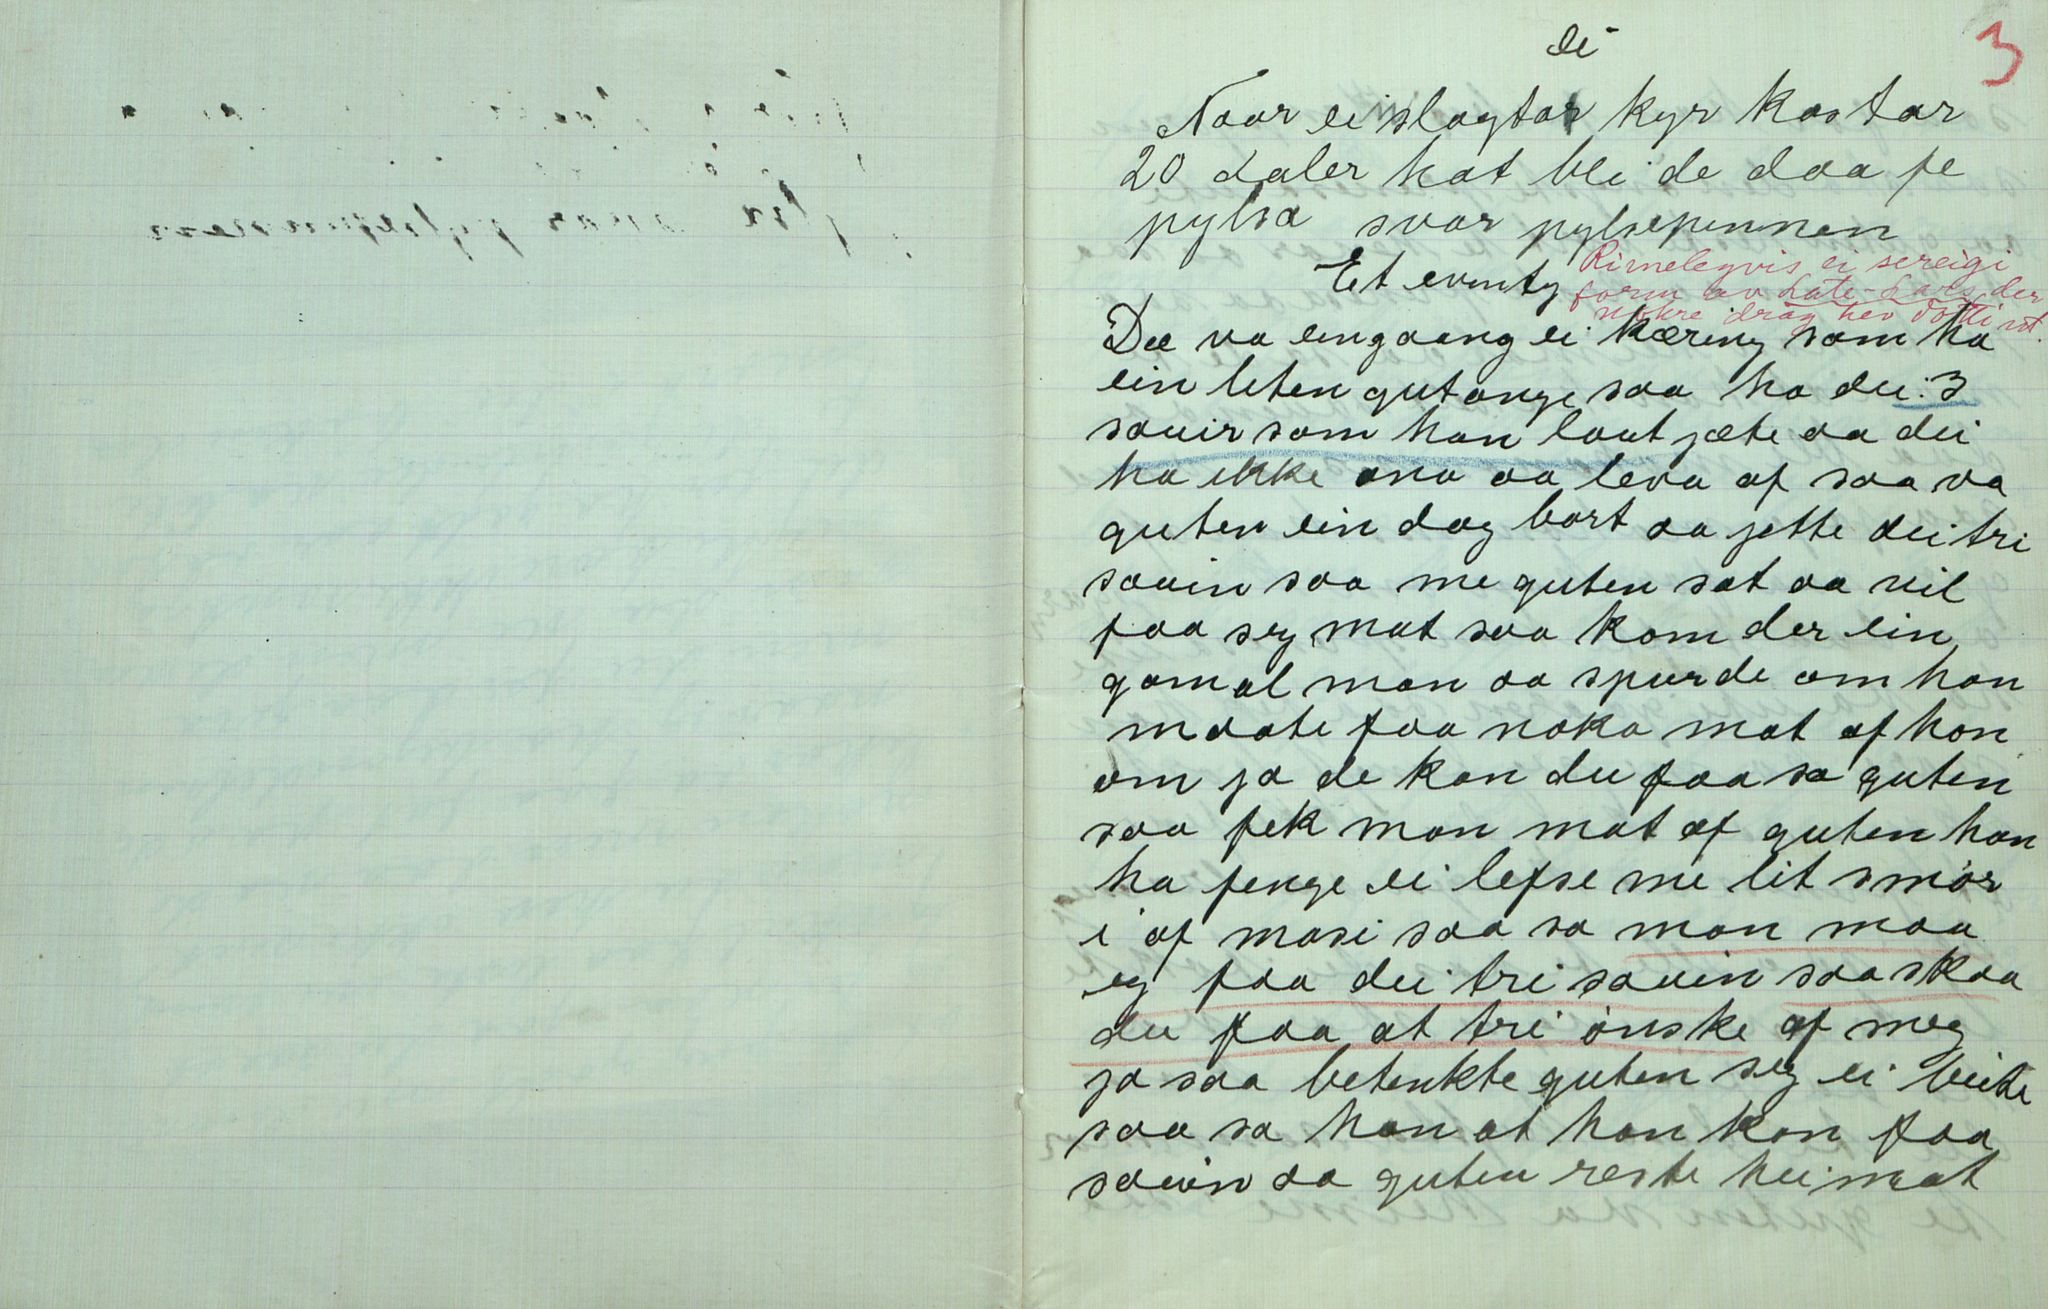 3
ei
Naar ei slagtar kyr kostar
20 daler kat bli de daa fe
pylsa svar pylsepinnen
Et eventy
Rimelegvis ei sereigi
form av Late-Lars, der
nokre drag hev dotti ut.
Dæ va eingaang ei kæring som ha
ein liten gutange saa ha dei 3
sauir som han laut jæte aa dei
ha ikke ana aa leva af saa va
guten ein dag bort aa jette dei tri
sauin saa me guten sat aa vil
faa seg mat saa kom der ein
gamal man aa spurde om han
maate faa noka mat af han
om ja de kan du faa sa guten
saa fek man mat af guten han
ha fenge ei lefse me lit smör
i af mosi saa sa man maa
eg faa dei tri sauin saa skaa
du faa at tri önske af meg
ja saa betenkte guten seg ei beite
saa sa han at han kan faa
sauin aa guten reste heimat